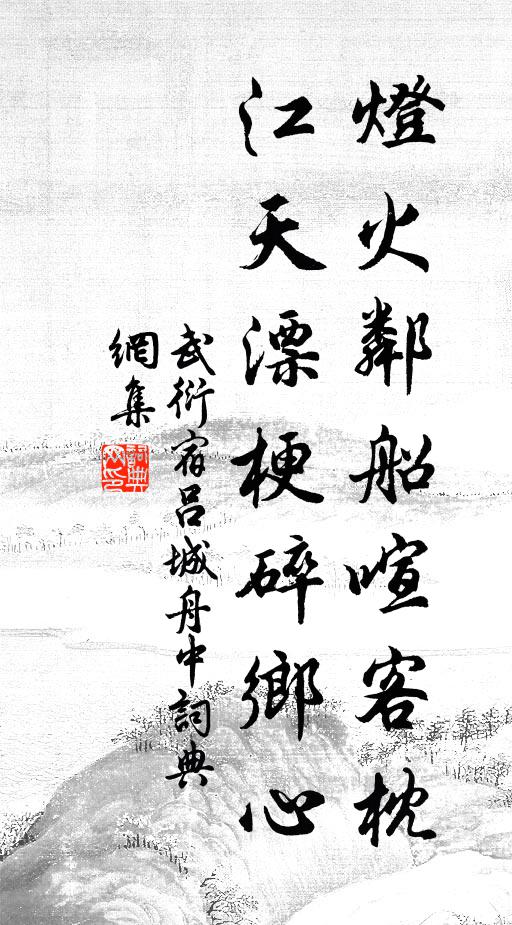 燈火鄰船喧客枕
江天漂梗碎鄉心
武衍宿呂城舟中詞典
網集
詞典網印